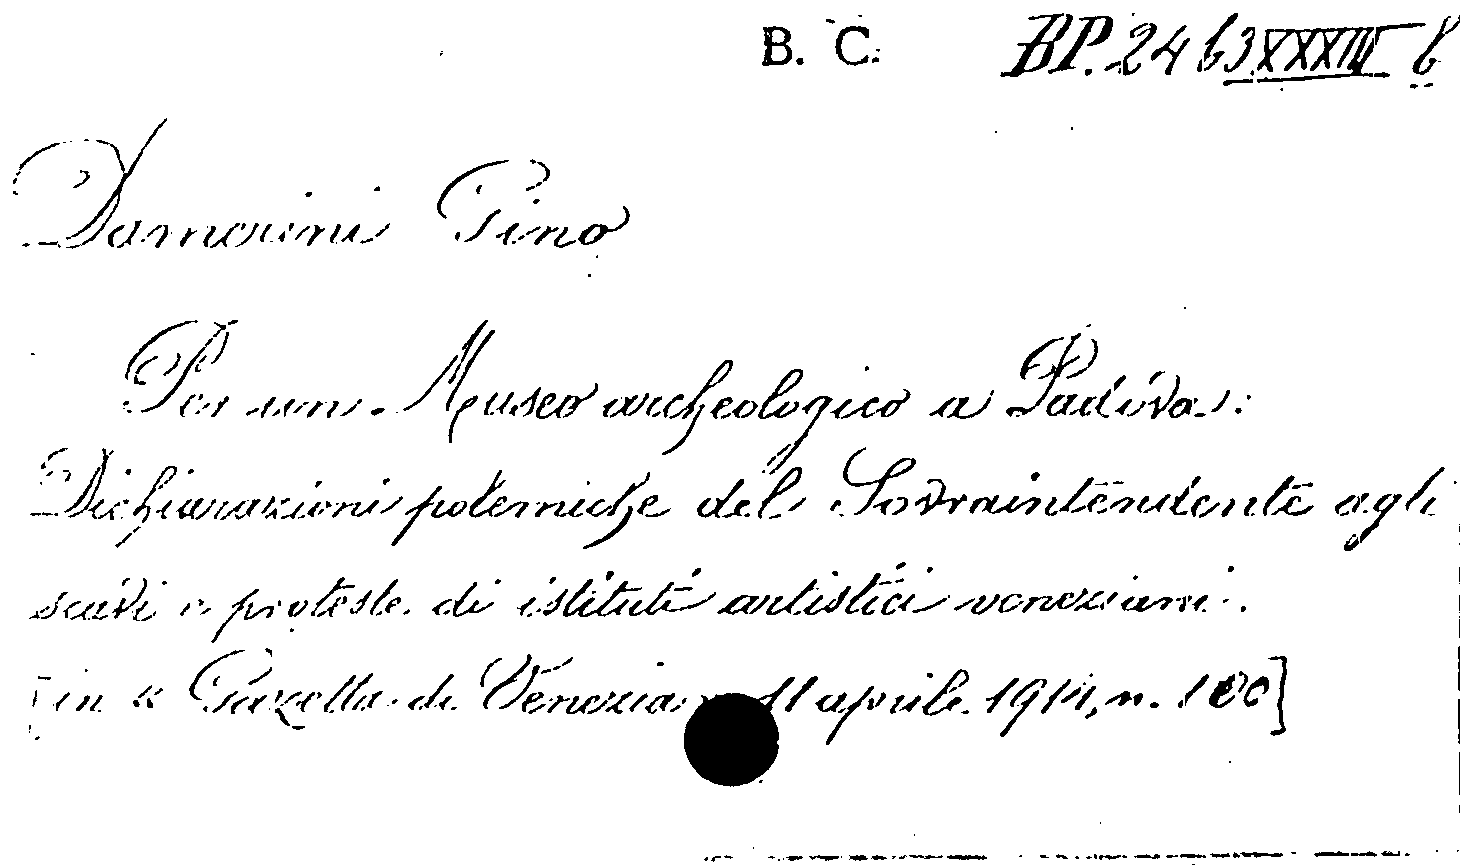 B. C. BP. 2463 XXXIII b
Damerini Gino
Per un Museo archeologico a Padova:
Dichiarazioni polemiche del Sovraintendente agli
scavi e proteste di istituti artistici veneziani.
[in « Gazzetta di Venezia » 11 aprile 1914, n. 100]